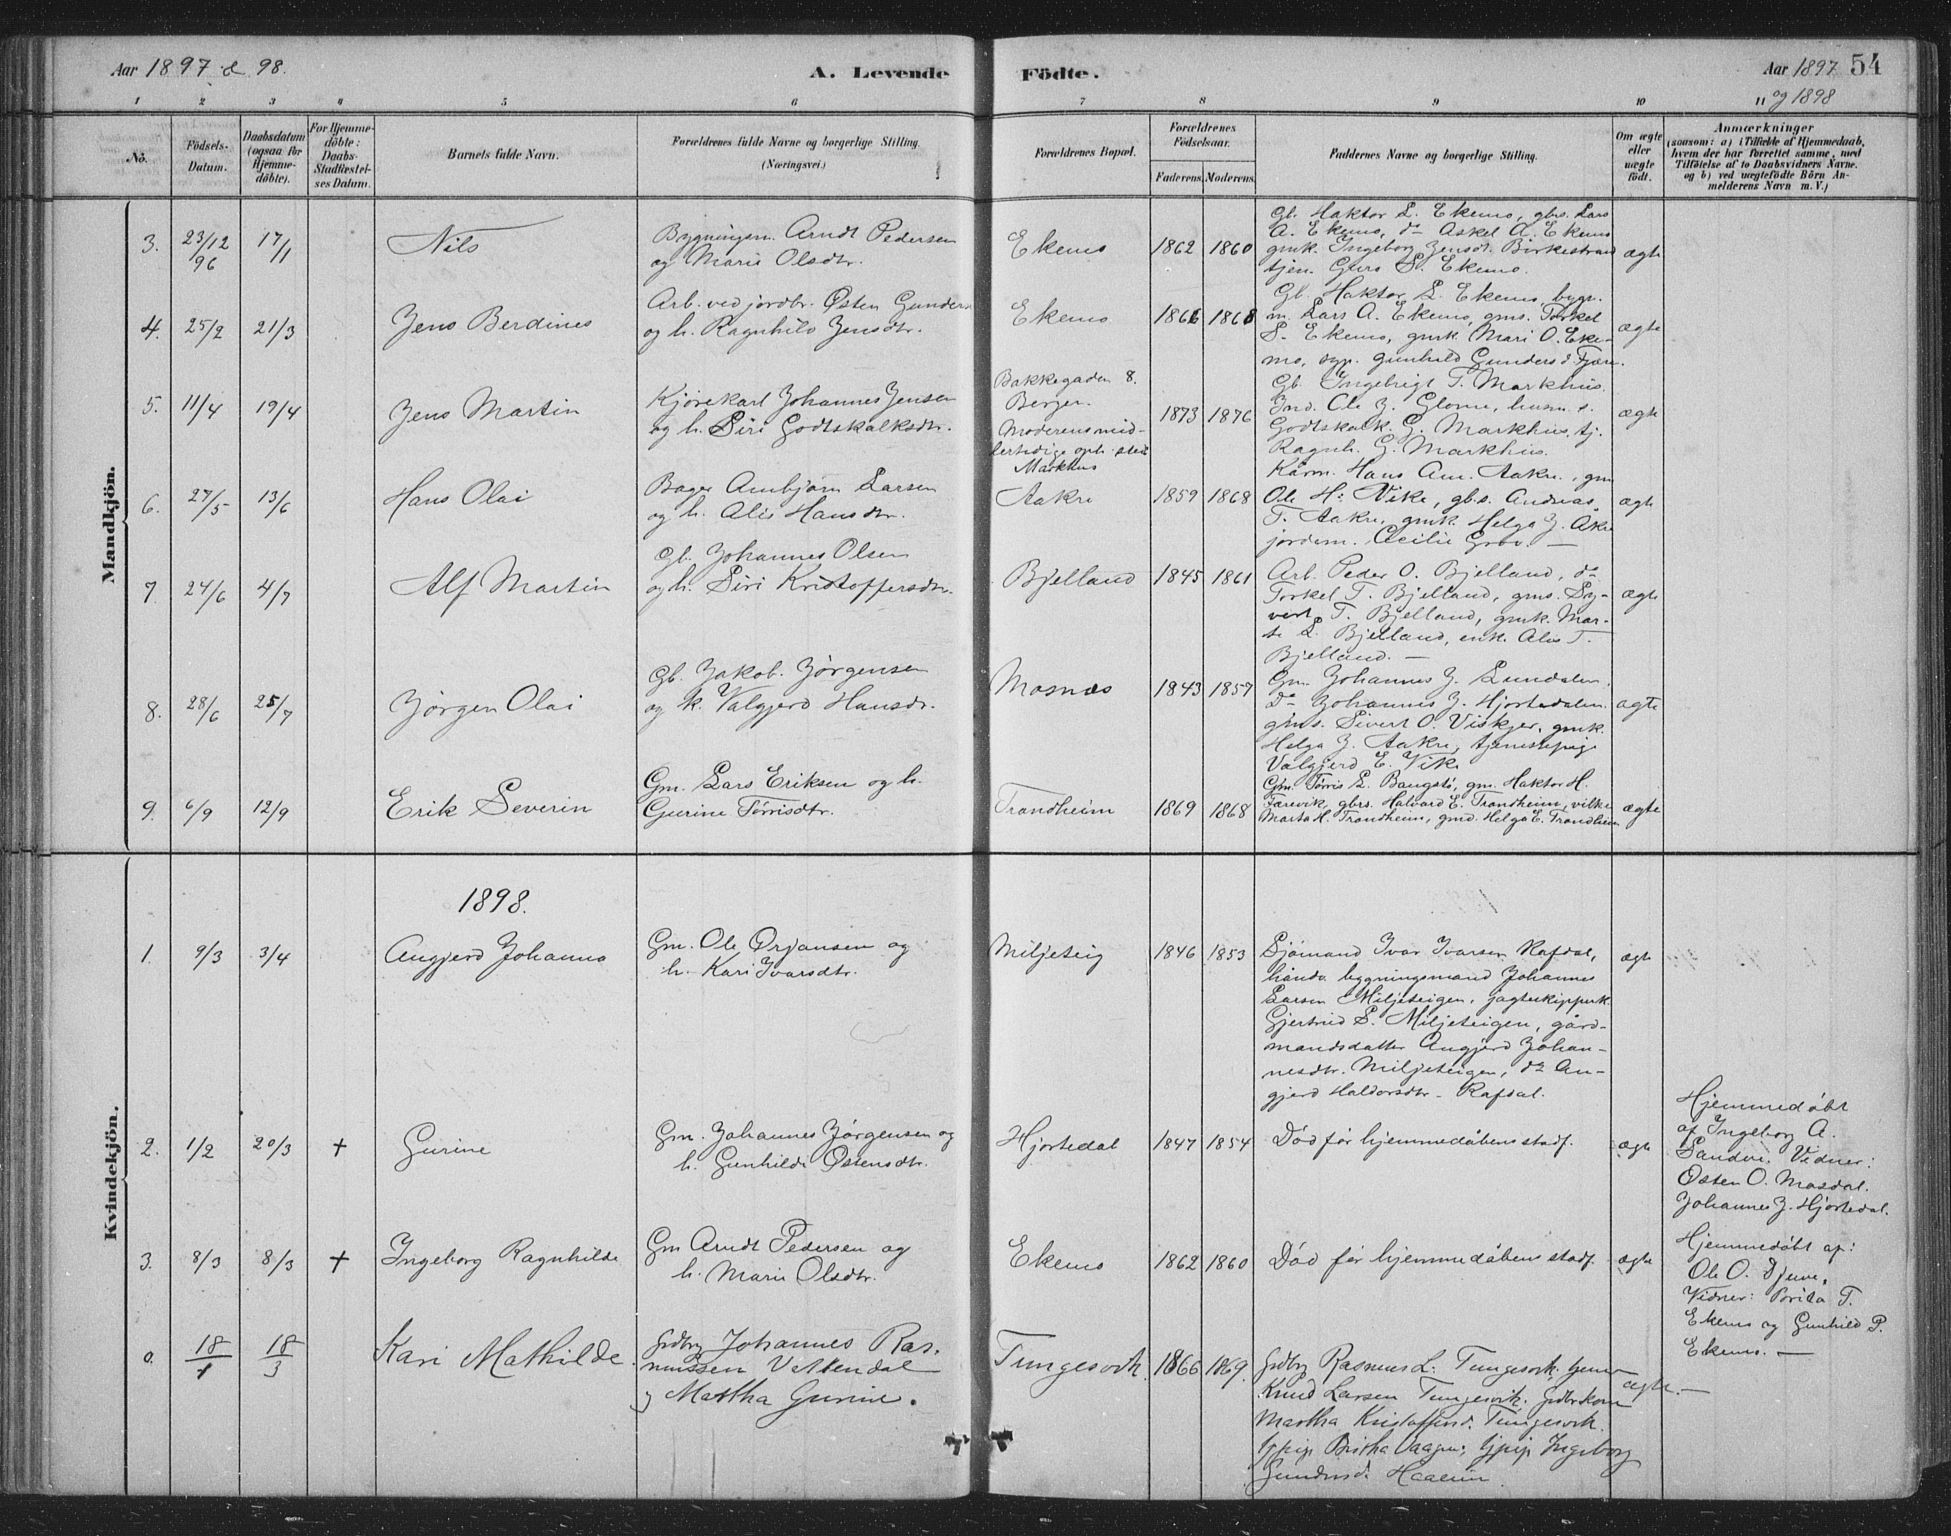 Aar 1897 & 98.
A. Levende Födte.
Aar 1897 54
og 1898
1 2 3 4 5 6 7 8 9 10 11
Nô.
Födsels-Datum.
Daabsdatum (ogsaa for Hjemme-döbte).
For Hjemme-döbte: Daabs-Stadfæstel-ses Datum.
Barnets fulde Navn.
Forældrenes fulde Navne og borgerlige Stilling. (Næringsvei.)
Forældrenes Bopæl.
Forældrenes Födselsaar.
Faderens. Moderens.
Faddernes Navne og borgerlige Stilling.
Om ægte eller uægte födt.
Anmærkninger
(saasom: a) i Tilfælde af Hjemmedaab,
hvem der har forrettet samme, med
Tilföielse af to Daabsvidners Navne.
og b) ved uægtefödte Börn An-
melderens Navn m. V.)
Mandkjön.
3. 23/12 96 17/1 Nils
Bygningsm. Arndt Pedersen
og Marie Olsdtr.
Ekemo 1862 1860
Gb. Haktor L. Ekemo, gbs. Lars
A. Ekemo, do Askel A. Ekemo
gmk. Ingeborg Jensdt. Birkestrand
tjen. Guro S. Ekemo.
ægte
4. 25/2 21/3 Jens Berdines
Arb. ved jordbr. Østen Gunders.
og h. Ragnhild Jensdtr.
Ekemo 1866 1868
Gb. Haktor L. Ekemo, bygn.
m. Lars A. Ekemo, gms. Torkel
S. Ekemo, gmk. Mari O. Eke-
mo, Gunhild Gundersd Fjære.
ægte
5. 11/4 19/4 Jens Martin
Kjørekarl Johannes Jensen
og h. Siri Godtskalksdtr.
Bakkegaden 8.
Bergen.
Moderens mid-
lertidige oph. sted
Markhus
1873 1876
Gb. Ingebrigt T. Markhus.
Ind. Ole J. Glome, husm. s.
Godtskalk G. Markhus, tj.
Ragnh. G. Markhus.
ægte
6. 27/5 13/6 Hans Olai
Bager Ambjørn Larsen
og h. Alis Hansdtr.
Aakre 1859 1868
Kårm. Hans Am. Aakre, gm
Ole H. Vike, gb.s. Andreas
T. Aakre, gmk Helga J. Akre
jordem. Cecilie Grov. —
ægte
7. 24/6 4/7 Alf Martin
Gb. Johannes Olsen
og h. Siri Kristoffersdtr.
Bjelland 1845 1861
Arb. Peder O. Bjelland, do
Torkel T. Bjelland, gms. Sy-
vert T. Bjelland, gmk. Mar-
te L. Bjelland, enk. Alis T.
Bjelland. —
ægte
8. 28/6 25/7 Jørgen Olai
Gb. Jakob Jørgensen
og k. Valgjerd Hansdr.
Mosnæs 1843 1857
Gm. Johannes J. Lundalen.
Do Johannes J. Hjortedalen.
gms. Sivert O. Viskjer, gmk.
Helga J. Aakre, tjenestepige
Valgjerd E. Vik
ægte
9. 6/9 12/9 Erik Severin
Gm. Lars Eriksen og h.
Gurine Tørrisdtr.
Trondheim 1869 1868
Gbm. Tørris L. Bangstø, gm. Haktor H.
Færevik, gbrs. Halvard E. Trondheim, vilke
Marta H. Trondheim, gmd. Helga E. Trondheim
ægte
Kvindekjön.
1898.
1. 9/3 3/4 Angjerd Johanna
Gm. Ole Ørjansen og
h. Kari Ivarsdtr.
Miljeteig 1846 1853
Sjømand Ivar Ivarsen Rafdal,
bygningsmand Johannes
Larsen Miljeteigen, jagtskipperk.
Gjertrud S. Miljeteigen, gård-
mandsdatter Angjerd Johan-
nesdtr. Miljeteigen, do An-
gjerd Haldorsdtr. Rafdal.
ægte
2. 1/2 20/3 † Gurine
Gm. Johannes Jørgensen og
h. Gunhilde Østensdtr.
Hjortedal 1847 1854
Død før hjemmedåbens stadf.
ægte
Hjemmedøbt
af Ingeborg A.
Sandvi. Vidner:
Østen O. Mosdal.
Johannes J. Hjortedal.
3. 8/3 8/3 † Ingeborg Ragnhilde
Gm Arndt Pedersen og
h. Marie Olsdtr.
Ekemo 1862 1860
Død før hjemmedåbens stadf.
ægte
Hjemmedøbt af:
Ole O. Djuve,
Vidner: Borita T.
Ekemo og Gunhild P.
Ekemo. —
0. 18/1 18/3 Kari Mathilde
Grdbr Johannes Ras-
mussen Vettendal
og Martha Gurine.
Tungesvik 1866 1869.
Grdbr Rasmus L. Tungesvik,
Knud Larsen Tungesvik, Grdbrkone
Martha Kristoffersd. Tungesvik
Tjpige Birtha Vaagen, Tjpige Ingeborg
Gundersd. Haaheim
ægte. —